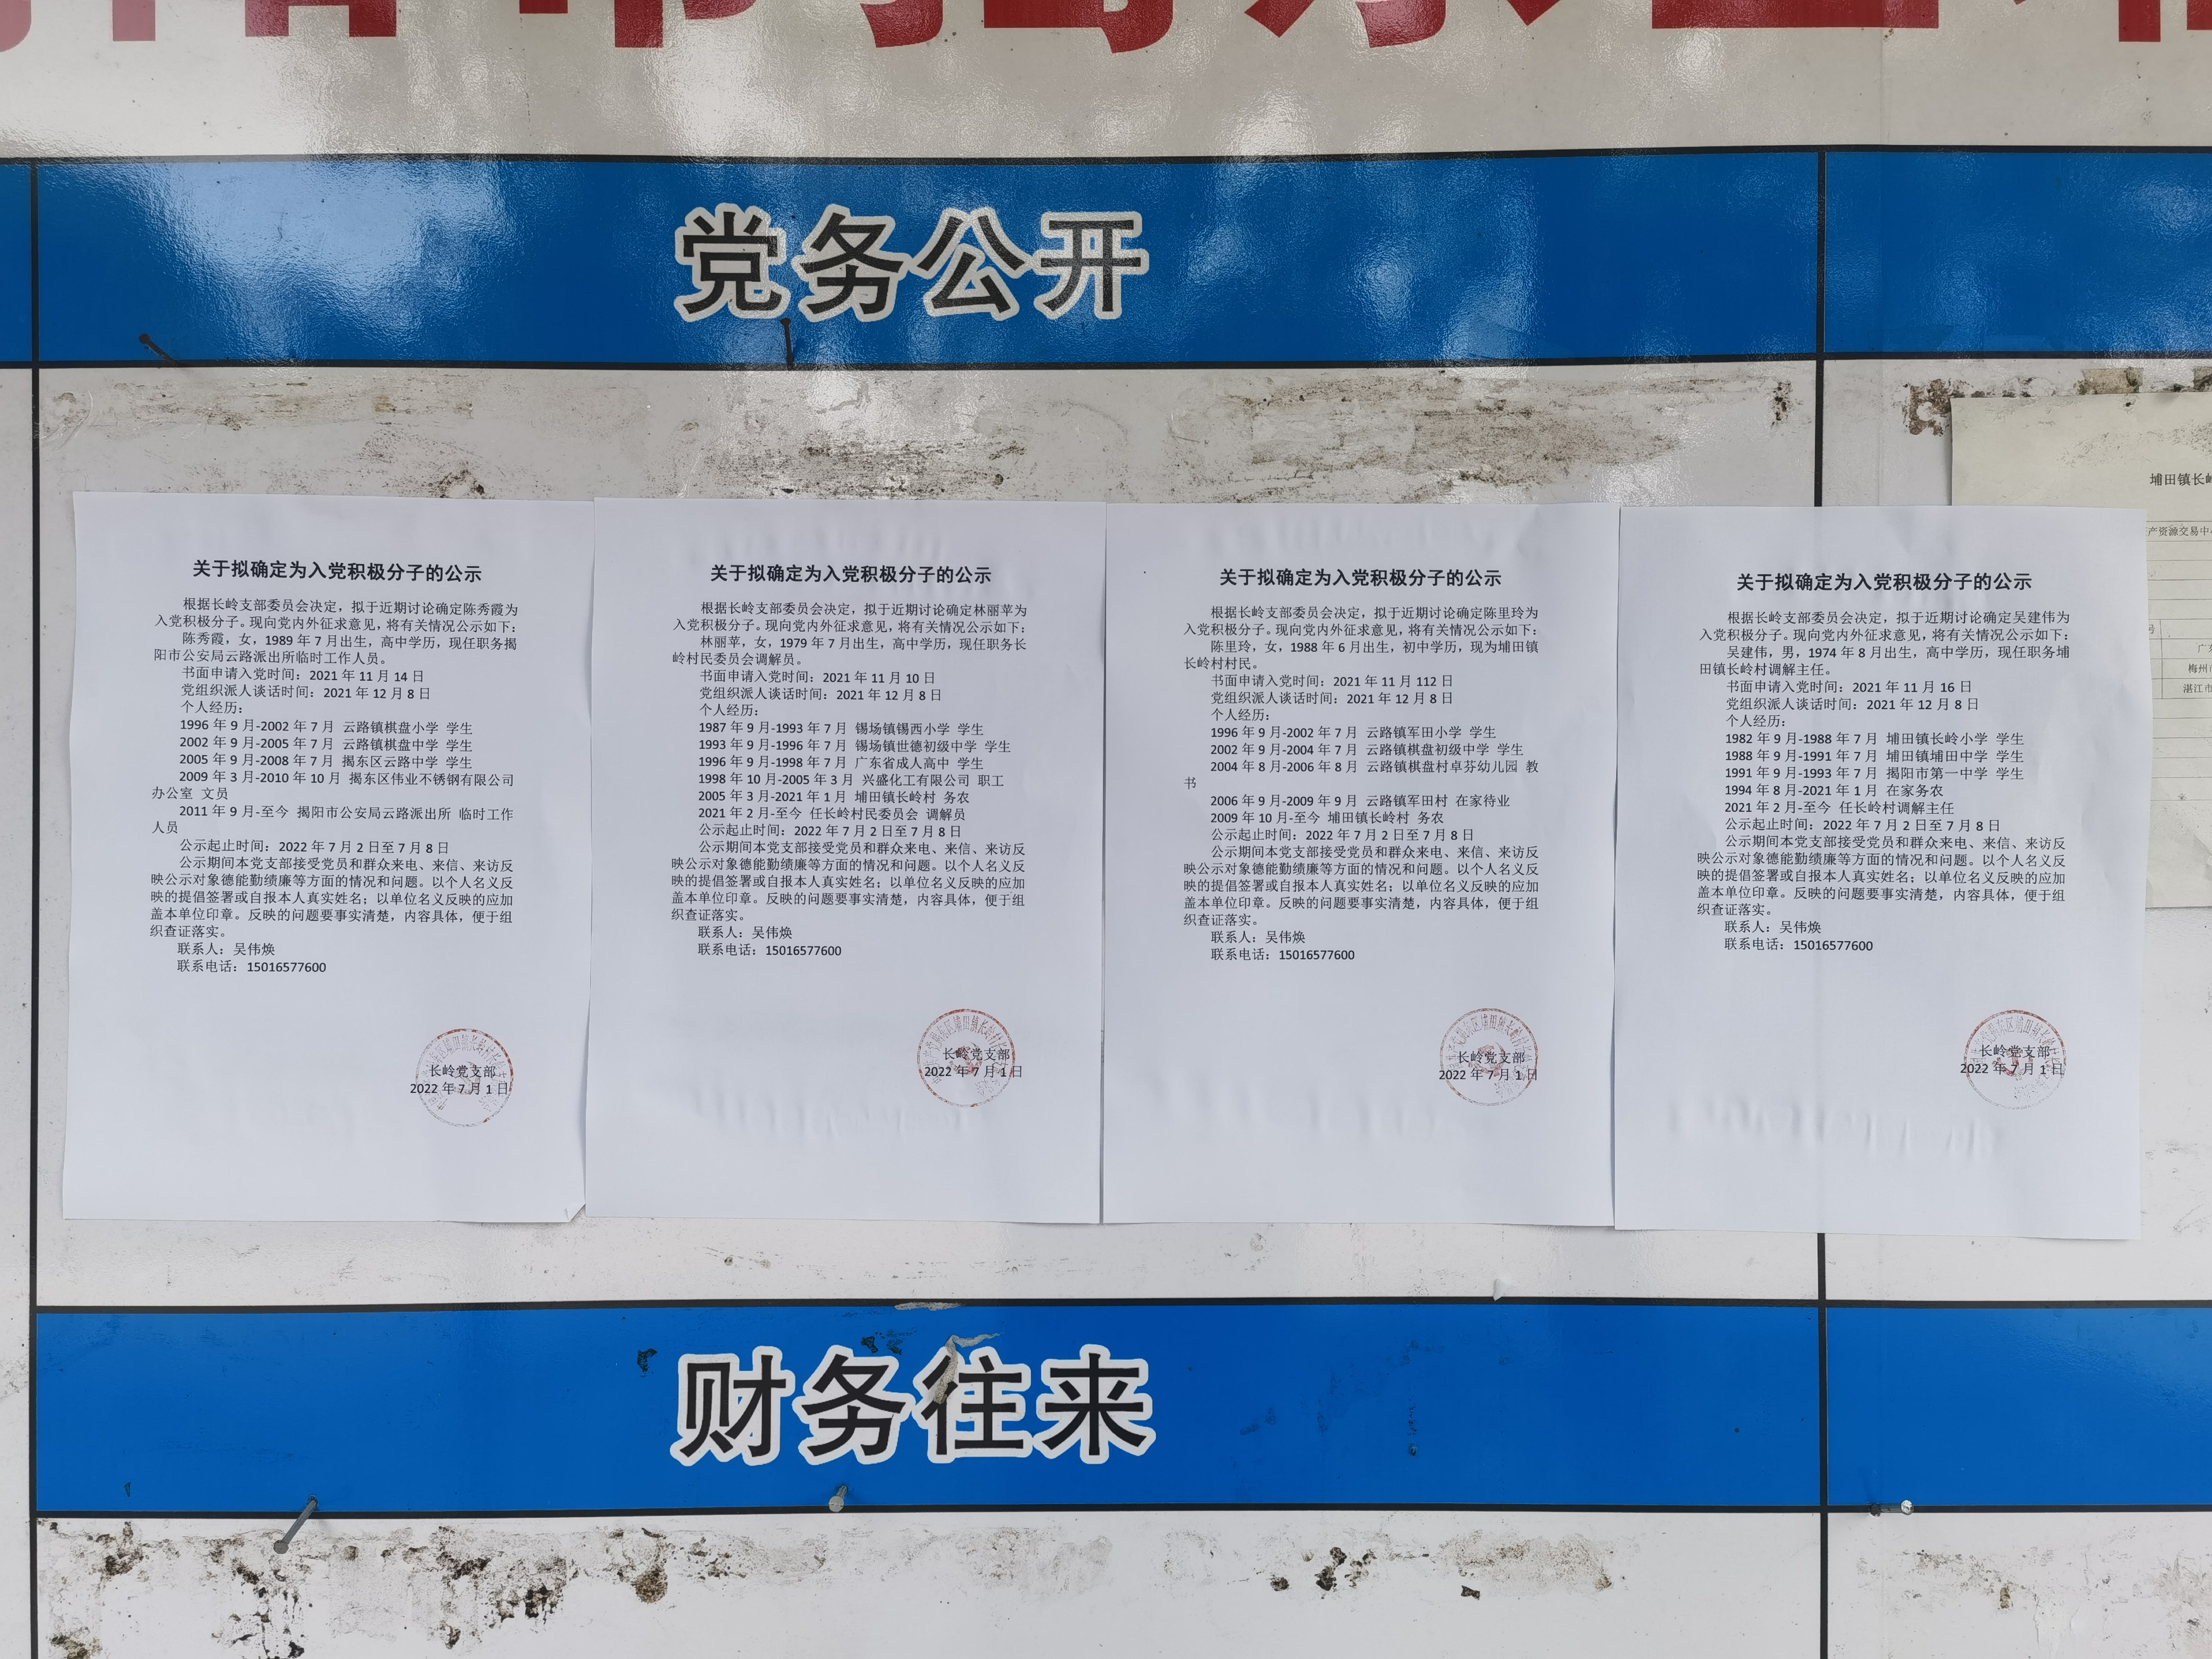 党务公开
关于拟确定为入党积极分子的公示
根据长岭支部委员会决定，拟于近期讨论确定陈秀霞为
入党积极分子。现向党内外征求意见，将有关情况公示如下：
陈秀霞，女，1989 年 7 月出生，高中学历，现任职务揭
阳市公安局云路派出所临时工作人员。
书面申请入党时间：2021 年 11 月 14 日
党组织派人谈话时间：2021 年 12 月 8 日
个人经历：
1996 年 9 月-2002 年 7 月 云路镇棋盘小学 学生
2002 年 9 月-2005 年 7 月 云路镇棋盘中学 学生
2005 年 9 月-2008 年 7 月 揭东区云路中学 学生
2009 年 3 月-2010 年 10 月 揭东区伟业不锈钢有限公司
办公室 文员
2011 年 9 月-至今 揭阳市公安局云路派出所 临时工作
人员
公示起止时间：2022 年 7 月 2 日至 7 月 8 日
公示期间本党支部接受党员和群众来电、来信、来访反
映公示对象德能勤绩廉等方面的情况和问题。以个人名义反
映的提倡签署或自报本人真实姓名；以单位名义反映的应加
盖本单位印章。反映的问题要事实清楚，内容具体，便于组
织查证落实。
联系人：吴伟焕
联系电话：15016577600
长岭党支部
2022 年 7 月 1 日
关于拟确定为入党积极分子的公示
根据长岭支部委员会决定，拟于近期讨论确定林丽苹为
入党积极分子。现向党内外征求意见，将有关情况公示如下：
林丽苹，女，1979 年 7 月出生，高中学历，现任职务长
岭村民委员会调解员。
书面申请入党时间：2021 年 11 月 10 日
党组织派人谈话时间：2021 年 12 月 8 日
个人经历：
1987 年 9 月-1993 年 7 月 锡场镇锡西小学 学生
1993 年 9 月-1996 年 7 月 锡场镇世德初级中学 学生
1996 年 9 月-1998 年 7 月 广东省成人高中 学生
1998 年 10 月-2005 年 3 月 兴盛化工有限公司 职工
2005 年 3 月-2021 年 1 月 埔田镇长岭村 务农
2021 年 2 月-至今 任长岭村民委员会 调解员
公示起止时间：2022 年 7 月 2 日至 7 月 8 日
公示期间本党支部接受党员和群众来电、来信、来访反
映公示对象德能勤绩廉等方面的情况和问题。以个人名义反
映的提倡签署或自报本人真实姓名；以单位名义反映的应加
盖本单位印章。反映的问题要事实清楚，内容具体，便于组
织查证落实。
联系人：吴伟焕
联系电话：15016577600
长岭党支部
2022 年 7 月 1 日
关于拟确定为入党积极分子的公示
根据长岭支部委员会决定，拟于近期讨论确定陈里玲为
入党积极分子。现向党内外征求意见，将有关情况公示如下：
陈里玲，女，1988 年 6 月出生，初中学历，现为埔田镇
长岭村村民。
书面申请入党时间：2021 年 11 月 112 日
党组织派人谈话时间：2021 年 12 月 8 日
个人经历：
1996 年 9 月-2002 年 7 月 云路镇军田小学 学生
2002 年 9 月-2004 年 7 月 云路镇棋盘初级中学 学生
2004 年 8 月-2006 年 8 月 云路镇棋盘村卓芬幼儿园 教
书
2006 年 9 月-2009 年 9 月 云路镇军田村 在家待业
2009 年 10 月-至今 埔田镇长岭村 务农
公示起止时间：2022 年 7 月 2 日至 7 月 8 日
公示期间本党支部接受党员和群众来电、来信、来访反
映公示对象德能勤绩廉等方面的情况和问题。以个人名义反
映的提倡签署或自报本人真实姓名；以单位名义反映的应加
盖本单位印章。反映的问题要事实清楚，内容具体，便于组
织查证落实。
联系人：吴伟焕
联系电话：15016577600
长岭党支部
2022 年 7 月 1 日
关于拟确定为入党积极分子的公示
根据长岭支部委员会决定，拟于近期讨论确定吴建伟为
入党积极分子。现向党内外征求意见，将有关情况公示如下：
吴建伟，男，1974 年 8 月出生，高中学历，现任职务埔
田镇长岭村调解主任。
书面申请入党时间：2021 年 11 月 16 日
党组织派人谈话时间：2021 年 12 月 8 日
个人经历：
1982 年 9 月-1988 年 7 月 埔田镇长岭小学 学生
1988 年 9 月-1991 年 7 月 埔田镇埔田中学 学生
1991 年 9 月-1993 年 7 月 揭阳市第一中学 学生
1994 年 8 月-2021 年 1 月 在家务农
2021 年 2 月-至今 任长岭村调解主任
公示起止时间：2022 年 7 月 2 日至 7 月 8 日
公示期间本党支部接受党员和群众来电、来信、来访反
映公示对象德能勤绩廉等方面的情况和问题。以个人名义反
映的提倡签署或自报本人真实姓名；以单位名义反映的应加
盖本单位印章。反映的问题要事实清楚，内容具体，便于组
织查证落实。
联系人：吴伟焕
联系电话：15016577600
长岭党支部
2022 年 7 月 1 日
埔田镇长岭
产资源交易中
号
广东
梅州市
湛江市
财务往来